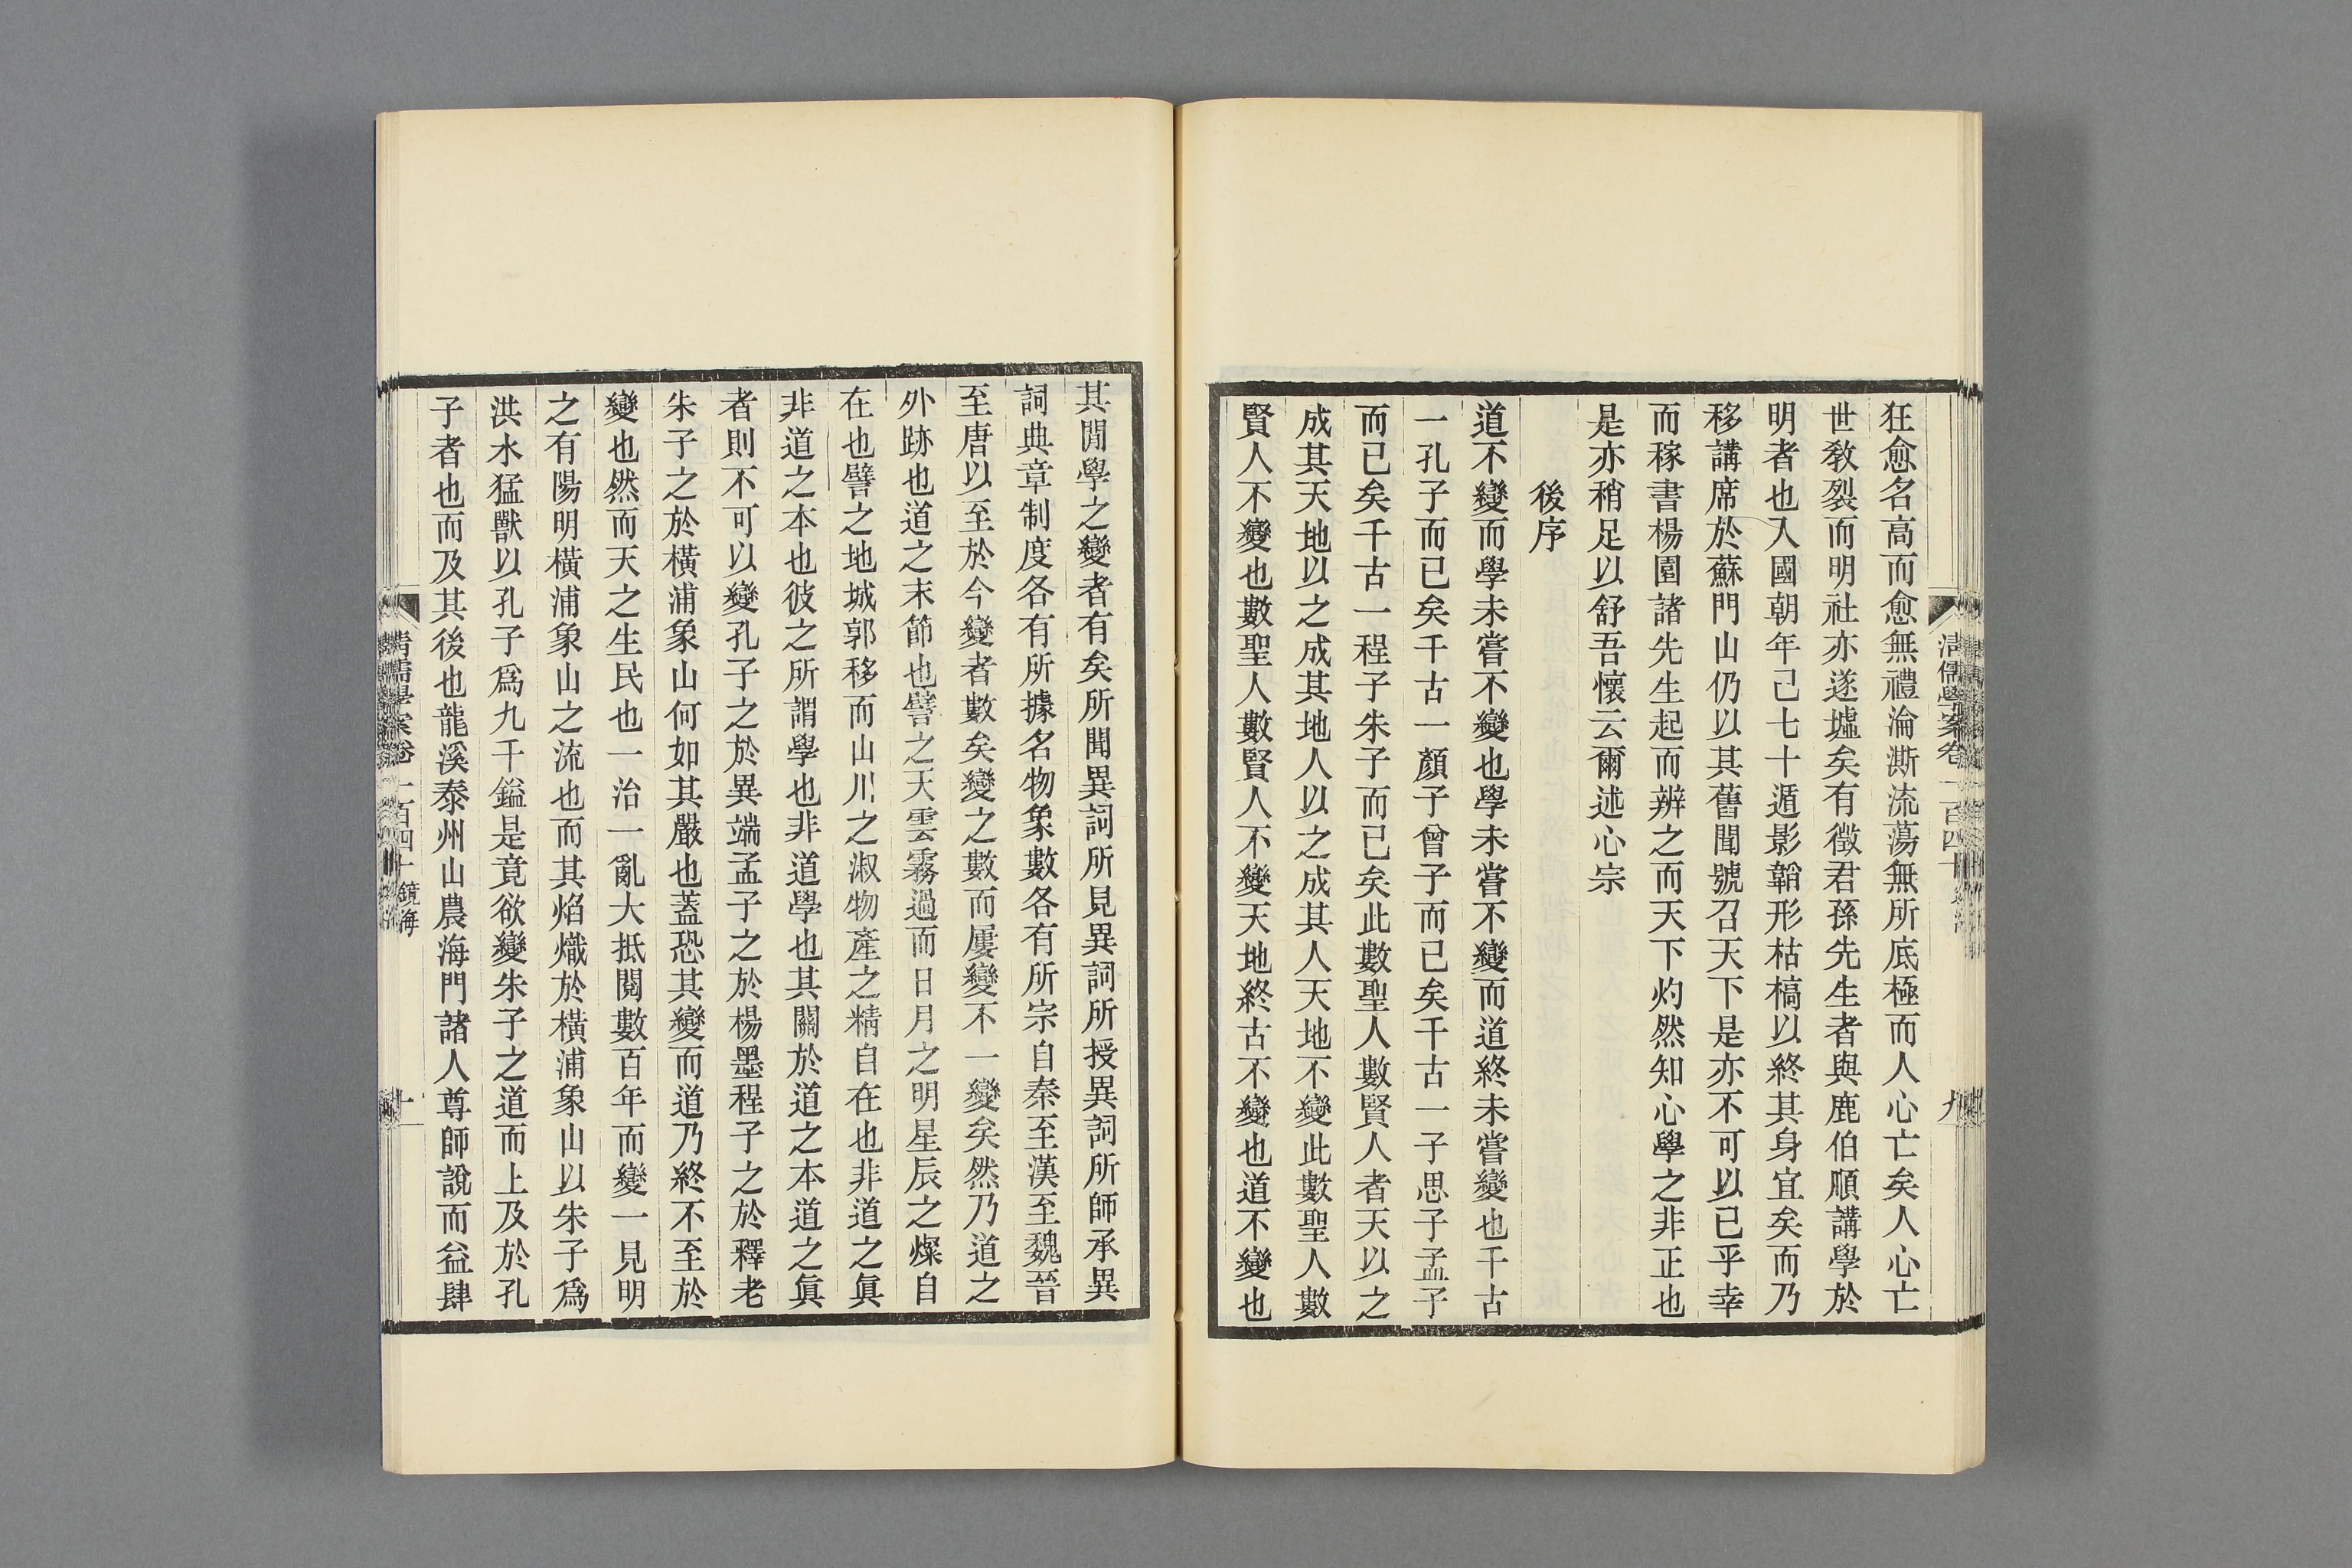 狂愈名高而愈無禮淪澌流蕩無所底極而人心亡矣人心亡
世教裂而明社亦遂墟矣有徵君孫先生者與鹿伯順講學於
明者也入國朝年已七十遁影韜形枯槁以終其身宜矣而乃
移講席於蘇門山仍以其舊聞號召天下是亦不可以已乎幸
而稼書楊園諸先生起而辨之而天下灼然知心學之非正也
是亦稍足以舒吾懷云爾述心宗
後序
道不變而學未嘗不變也學未嘗不變而道終未嘗變也千古
一孔子而已矣千古一顏子曾子而已矣千古一子思子孟子
而已矣千古一程子朱子而已矣此數聖人數賢人者天以之
成其天地以之成其地人以之成其人天地不變此數聖人數
賢人不變也數聖人數賢人不變天地終古不變也道不變也
其閒學之變者有矣所聞異詞所見異詞所授異詞所師承異
詞典章制度各有所據名物象數各有所宗自秦至漢至魏晉
至唐以至於今變者數矣變之數而屢變不一變矣然乃道之
外跡也道之末節也譬之天雲霧過而日月之明星辰之燦自
在也譬之地城郭移而山川之淑物產之精自在也非道之眞
非道之本也彼之所謂學也非道學也其關於道之本道之眞
者則不可以變孔子之於異端孟子之於楊墨程子之於釋老
朱子之於橫浦象山何如其嚴也蓋恐其變而道乃終不至於
變也然而天之生民也一治一亂大抵閱數百年而變一見明
之有陽明橫浦象山之流也而其焰熾於橫浦象山以朱子爲
洪水猛獸以孔子爲九千鎰是竟欲變朱子之道而上及於孔
子者也而及其後也龍溪泰州山農海門諸人尊師說而益肆
清儒學案卷一百四十
九
清儒學案卷一百四十 鏡海
十